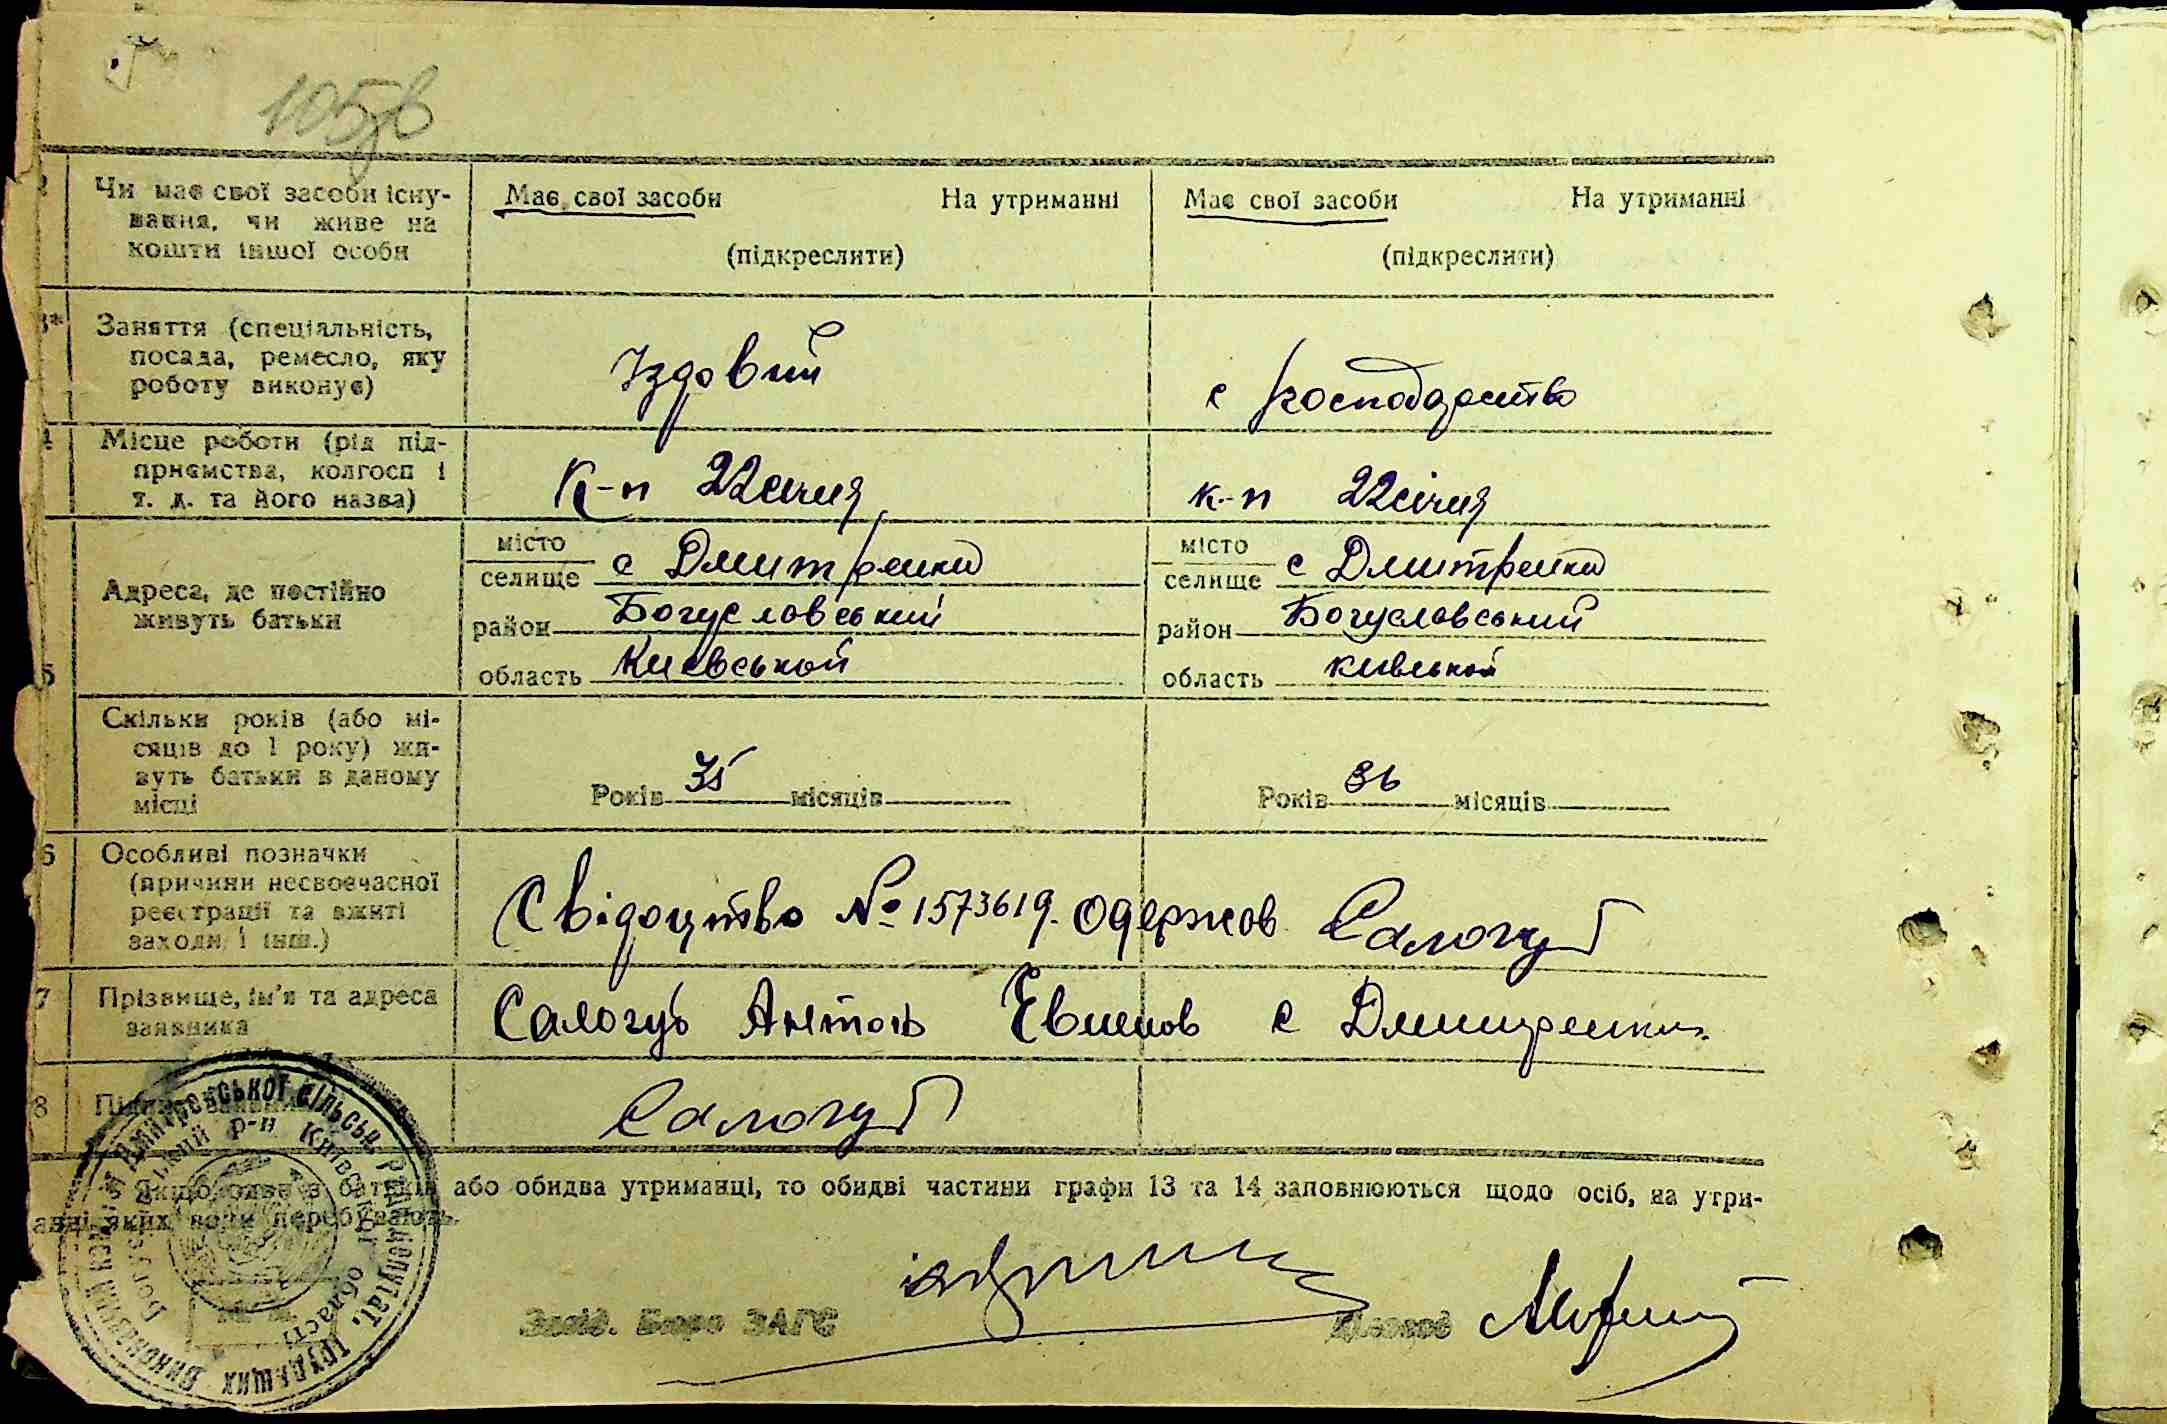 105зв
2 Чи має свої засоби існу-
вання, чи живе на
кошти іншої особи
Має свої засоби На утриманні
(підкреслити)
Має свої засоби На утриманні
(підкреслити)
3* Заняття (спеціяльність,
посада, ремесло, яку
роботу виконує)
Їздовий
с господарство
4 Місце роботи (рід під-
приємства, колгосп і
т. д. та його назва)
К-п 22 січня
к-п 22 січня
5 Адреса, де постійно
живуть батьки
місто
селище с Дмитренки
район Богуславський
область Киевськой
місто
селище с Дмитренки
район Богуславський
область
Скільки років (або мі-
сяців до 1 року) жи-
вуть батьки в даному
місці
Років 35 місяців
Років 36 місяців
6 Особливі позначки
(причини несвоєчасної
реєстрації та вжиті
заходи і інш.)
Свідоцтво № 1573619. одержов Салогуб
7 Прізвище, ім'я та адреса
заявника
Салогуб Антон с Дмитренки.
8
Салогуб
* Якщо одне з батьків або обидва утриманці, то обидві частини графи 13 та 14 заповнюються щодо осіб, на утри-
анні яких вони перебувають.
Завід. Бюро ЗАГС
Виконавчий Дмитренської сільськ. ради депутат. трудящих
Богуславський р-н Київської області